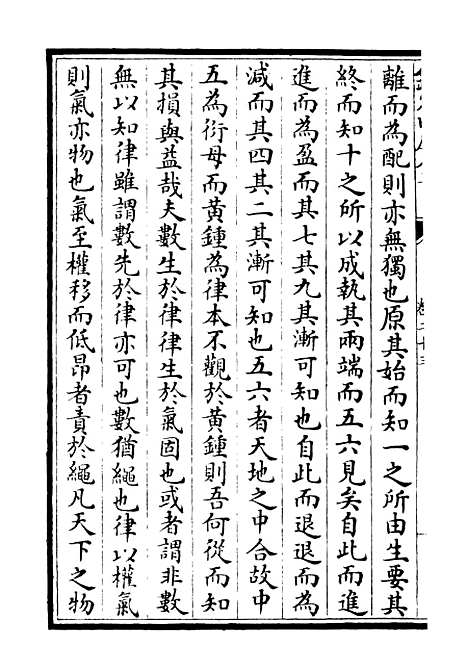 離而為配則亦無獨也原其始而知一之所由生要其
終而知十之所以成執其兩端而五六見矣自此而進
進而為盈而其七其九其漸可知也自此而退退而為
減而其四其二其漸可知也五六者天地之中合故中
五為衍母而黃鍾為律本不觀於黃鍾則吾何從而知
其損與益哉夫數生於律律生於氣固也或者謂非數
無以知律雖謂數先於律亦可也數猶繩也律以權氣
則氣亦物也氣至權移而低昂者責於繩凡天下之物